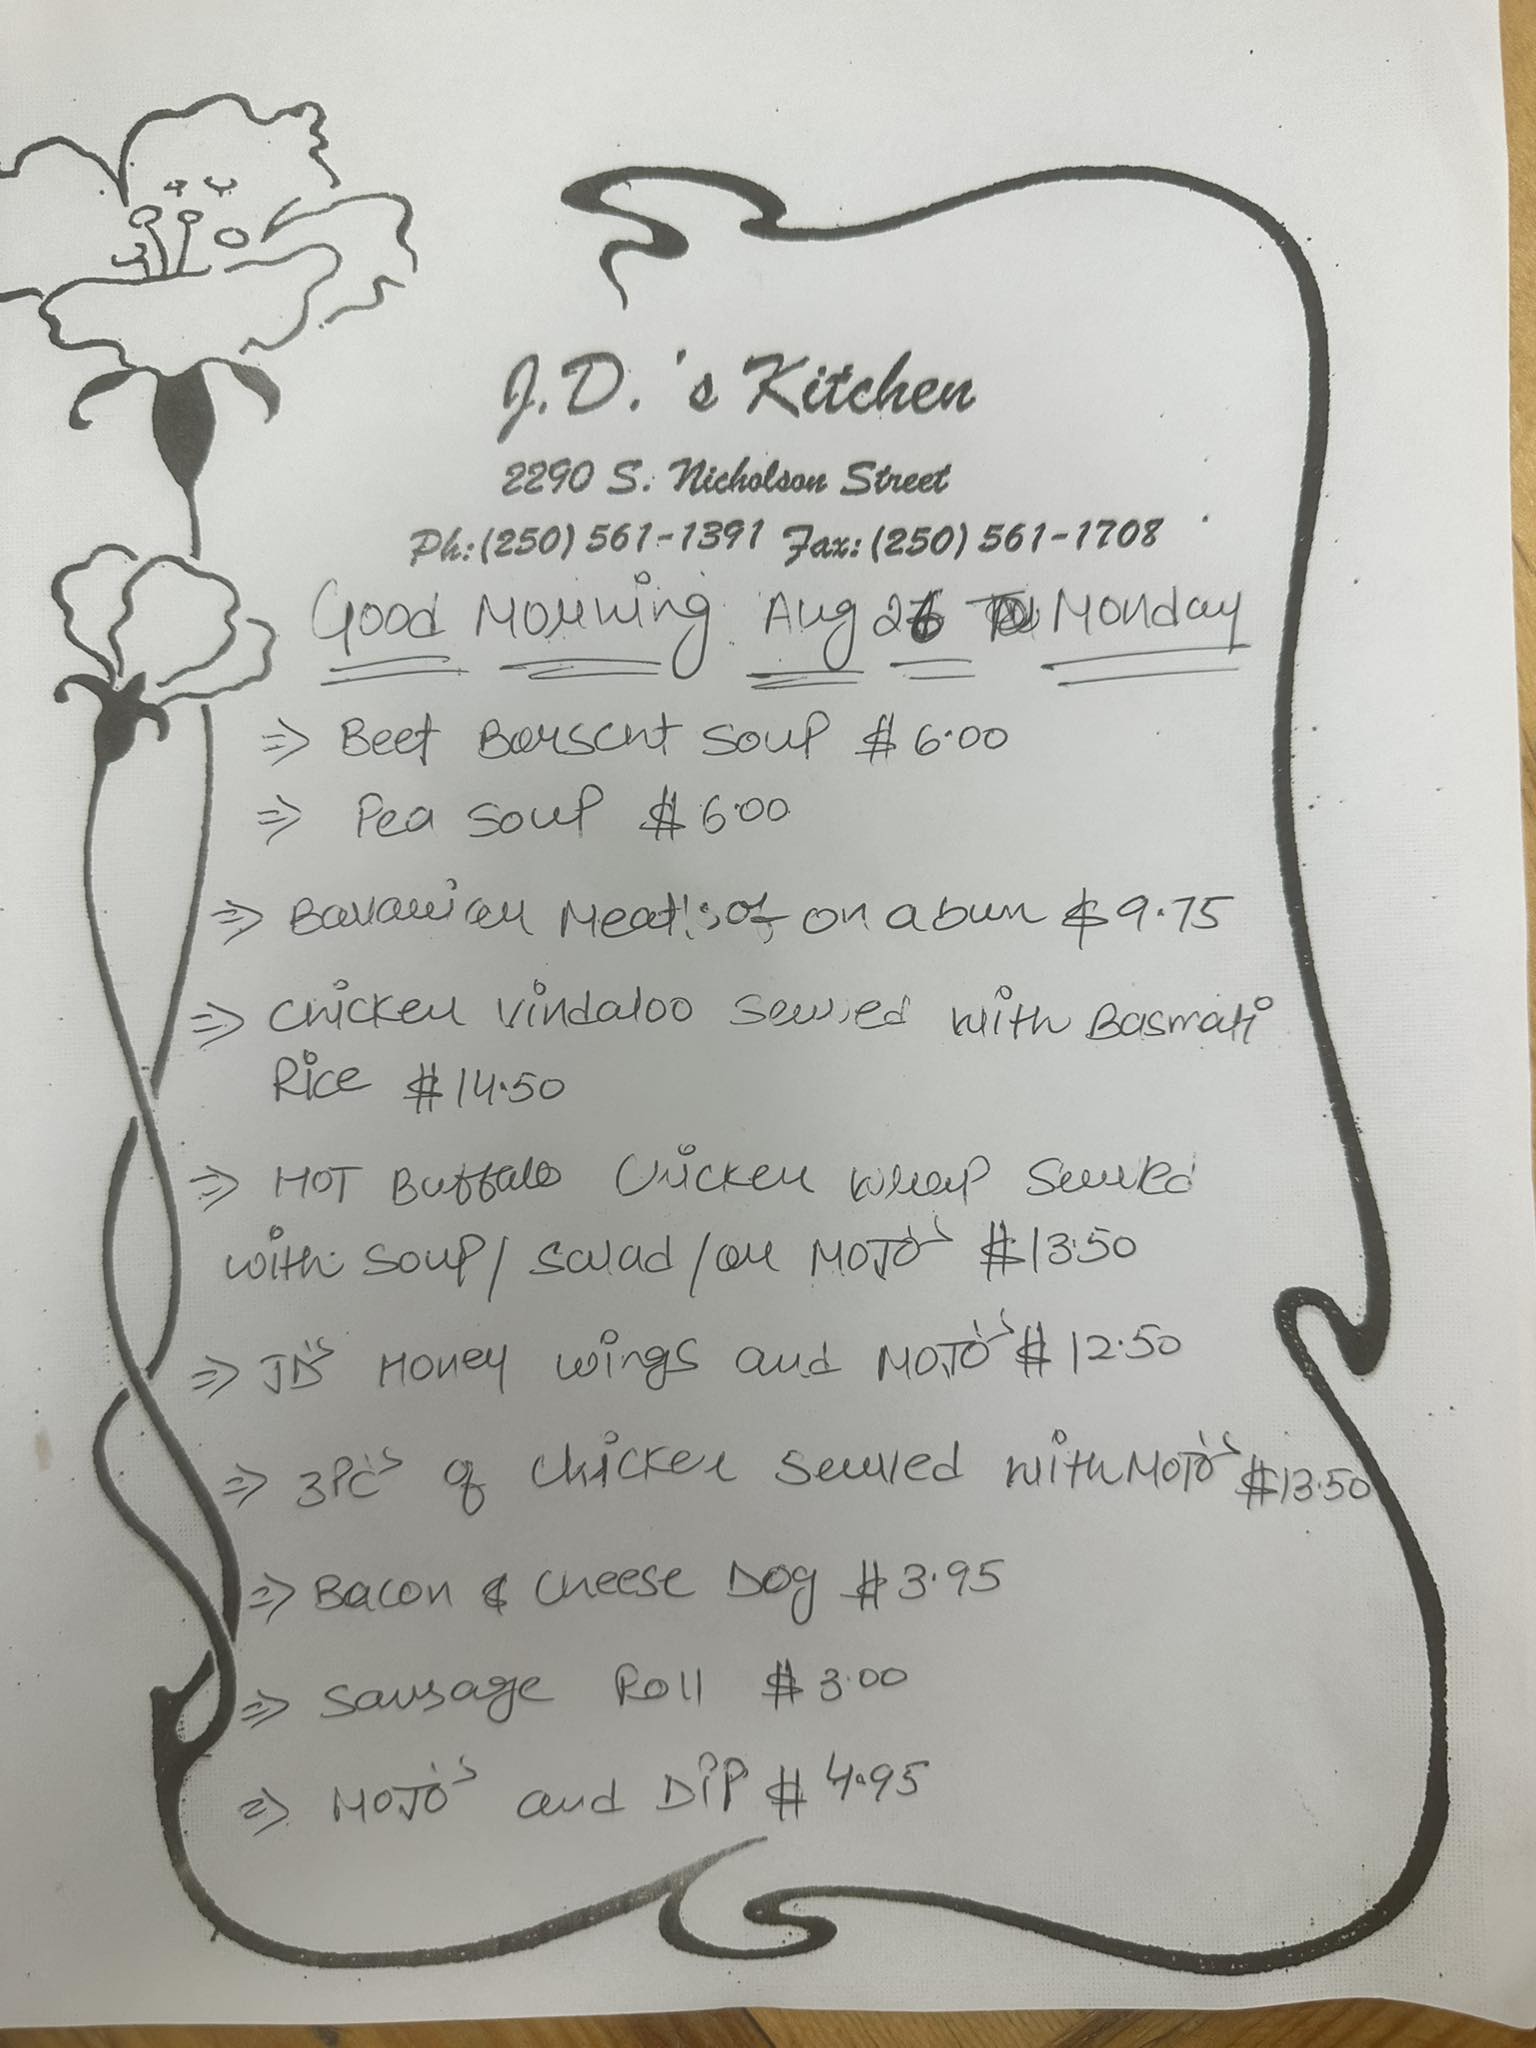 J.D.'s Kitchen
2290 S. Nicholson Street
Ph: (250) 561-1391 Fax: (250) 561-1708
Good Morning Aug 26 Monday
⇒ Beef Borscht Soup $6.00
⇒ Pea Soup $6.00
⇒ Bavarian Meat on a bun $9.75
⇒ Chicken Vindaloo Served with Basmati
Rice $14.50
⇒ HOT Buffalo Chicken Wrap Served
with Soup/ Salad /or MOJO's $13.50
⇒ JD's Honey wings and MOJO's $12.50
⇒ 3Pc's of Chicken Served with MOJO's $13.50
⇒ Bacon & Cheese Dog $3.95
⇒ Sausage Roll $3.00
⇒ MOJO's and DiP $4.95